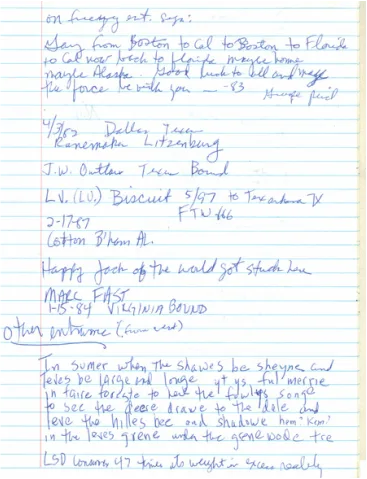 on freeway ext. says:
Gary from Boston to Cal to Boston to Florida
to Cal now back to Florida maybe home
maybe Alaska. Good luck to all and may
the force be with you — -83
4/3/83 Dallas Texas
Litzenburg
J.W. Outlaw Texas Bound
L.V. (LU.) Biscuit 5/97 to Texarkana TX
FTW 666
2-17-87
Cotton B'ham Al.
Happy Jack of the world got stuck here
MARC FAST
1-15-84 VIRGINIA BOUND
other entrance (from west)
In sumer when the shawes be sheyne and
leves be large and longe yt ys ful merrie
in faire forest to here the fowlys songe
to see the deere drawe to the dale and
leve the hilles hee and shadowe hem "kim"
in the leves grene under the grene wode tre
LSD consumes 47 times its weight in excess reality